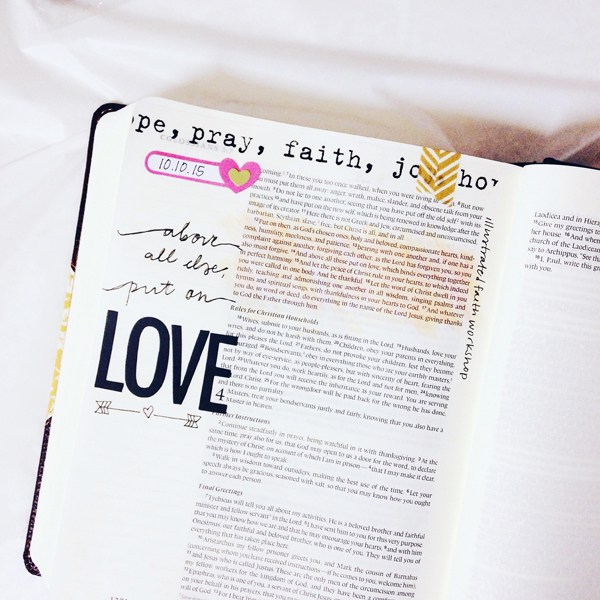 ope, pray, faith, jo hop
10.10.15
above
all else,
put on
LOVE
illustrated faith workshop
coming. 7 In these you too once walked, when you were living in 8 But now
must put them all away: anger, wrath, malice, slander, and obscene talk from your
mouth. 9 Do not lie to one another, seeing that you have put off the old self with its
practices 10 and have put on the new self, which is being renewed in knowledge after the
image of its creator. 11 Here there is not Greek and Jew, circumcised and uncircumcised,
barbarian, Scythian, slave, free; but Christ is all, and in all.
12 Put on then, as God's chosen ones, holy and beloved, compassionate hearts, kind-
ness, humility, meekness, and patience, 13 bearing with one another and, if one has a
complaint against another, forgiving each other; as the Lord has forgiven you, so you
also must forgive. 14 And above all these put on love, which binds everything together
in perfect harmony. 15 And let the peace of Christ rule in your hearts, to which indeed
you were called in one body. And be thankful. 16 Let the word of Christ dwell in you
richly, teaching and admonishing one another in all wisdom, singing psalms and
hymns and spiritual songs, with thankfulness in your hearts to God. 17 And whatever
you do, in word or deed, do everything in the name of the Lord Jesus, giving thanks
to God the Father through him.
Rules for Christian Households
18 Wives, submit to your husbands, as is fitting in the Lord. 19 Husbands, love your
wives, and do not be harsh with them. 20 Children, obey your parents in everything,
for this pleases the Lord. 21 Fathers, do not provoke your children, lest they become
discouraged. 22 Bondservants, obey in everything those who are your earthly masters,
not by way of eye-service, as people-pleasers, but with sincerity of heart, fearing the
Lord. 23 Whatever you do, work heartily, as for the Lord and not for men, 24 knowing
that from the Lord you will receive the inheritance as your reward. You are serving
the Lord Christ. 25 For the wrongdoer will be paid back for the wrong he has done,
and there is no partiality.
4 Masters, treat your bondservants justly and fairly, knowing that you also have a
Master in heaven.
Further Instructions
2 Continue steadfastly in prayer, being watchful in it with thanksgiving. 3 At the
same time, pray also for us, that God may open to us a door for the word, to declare
the mystery of Christ, on account of which I am in prison— 4 that I may make it clear,
which is how I ought to speak.
5 Walk in wisdom toward outsiders, making the best use of the time. 6 Let your
speech always be gracious, seasoned with salt, so that you may know how you ought
to answer each person.
Final Greetings
7 Tychicus will tell you all about my activities. He is a beloved brother and faithful
minister and fellow servant in the Lord. 8 I have sent him to you for this very purpose,
that you may know how we are and that he may encourage your hearts, 9 and with him
Onesimus, our faithful and beloved brother, who is one of you. They will tell you of
everything that has taken place here.
10 Aristarchus my fellow prisoner greets you, and Mark the cousin of Barnabas
(concerning whom you have received instructions—if he comes to you, welcome him),
11 and Jesus who is called Justus. These are the only men of the circumcision among
my fellow workers for the kingdom of God, and they have been a comfort
12 Epaphras, who is one of you, a servant of Christ Jesus
on your behalf in his prayers, that you may
of God. 13 For I
Laodicea and in Hiera
15 Give my greetings to
her house. 16 And when
church of the Laodicean
say to Archippus, "See tha
18 I, Paul, write this gr
with you.